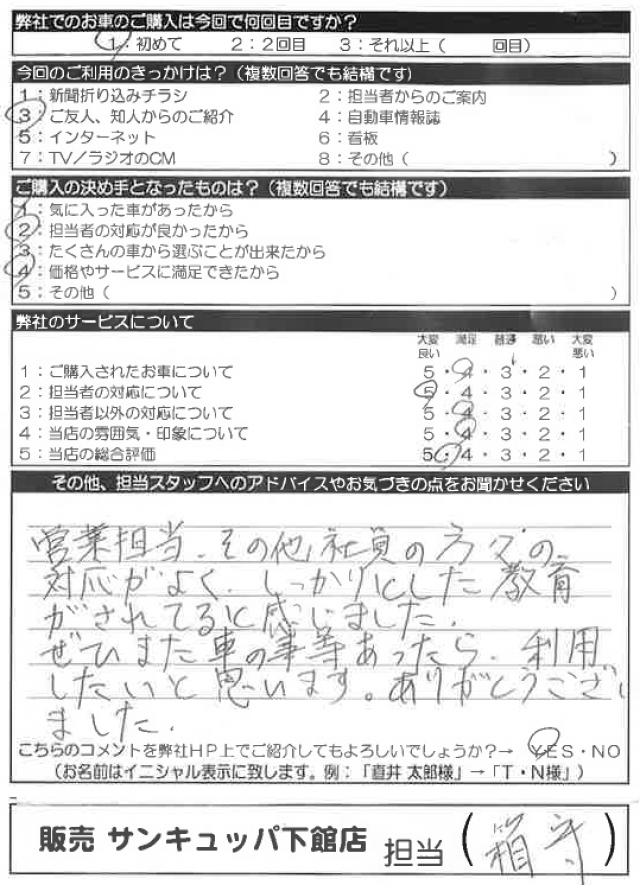 弊社でのお車のご購入は今回で何回目ですか?
1:初めて 2:2回目 3:それ以上( 回目)
今回のご利用のきっかけは?(複数回答でも結構です)
1:新聞折り込みチラシ 2:担当者からのご案内
3:ご友人、知人からのご紹介 4:自動車情報誌
5:インターネット 6:看板
7:TV/ラジオのCM 8:その他( )
ご購入の決め手となったものは?(複数回答でも結構です)
1:気に入った車があったから
2:担当者の対応が良かったから
3:たくさんの車から選ぶことが出来たから
4:価格やサービスに満足できたから
5:その他( )
弊社のサービスについて
大変良い 満足 普通 悪い 大変悪い
1:ご購入されたお車について 5・4・3・2・1
2:担当者の対応について 5・4・3・2・1
3:担当者以外の対応について 5・4・3・2・1
4:当店の雰囲気・印象について 5・4・3・2・1
5:当店の総合評価 5・4・3・2・1
その他、担当スタッフへのアドバイスやお気づきの点をお聞かせください
営業担当、その他社員の方々の
対応がよく、しっかりとした教育
がされてると感じました。
ぜひまた車の事等あったら、利用
したいと思います。ありがとうござい
ました。
こちらのコメントを弊社HP上でご紹介してもよろしいでしょうか?→ YES・NO
(お名前はイニシャル表示に致します。例:「直井 太郎様」→「T・N様」)
販売 サンキュッパ下館店 担当(箱守)